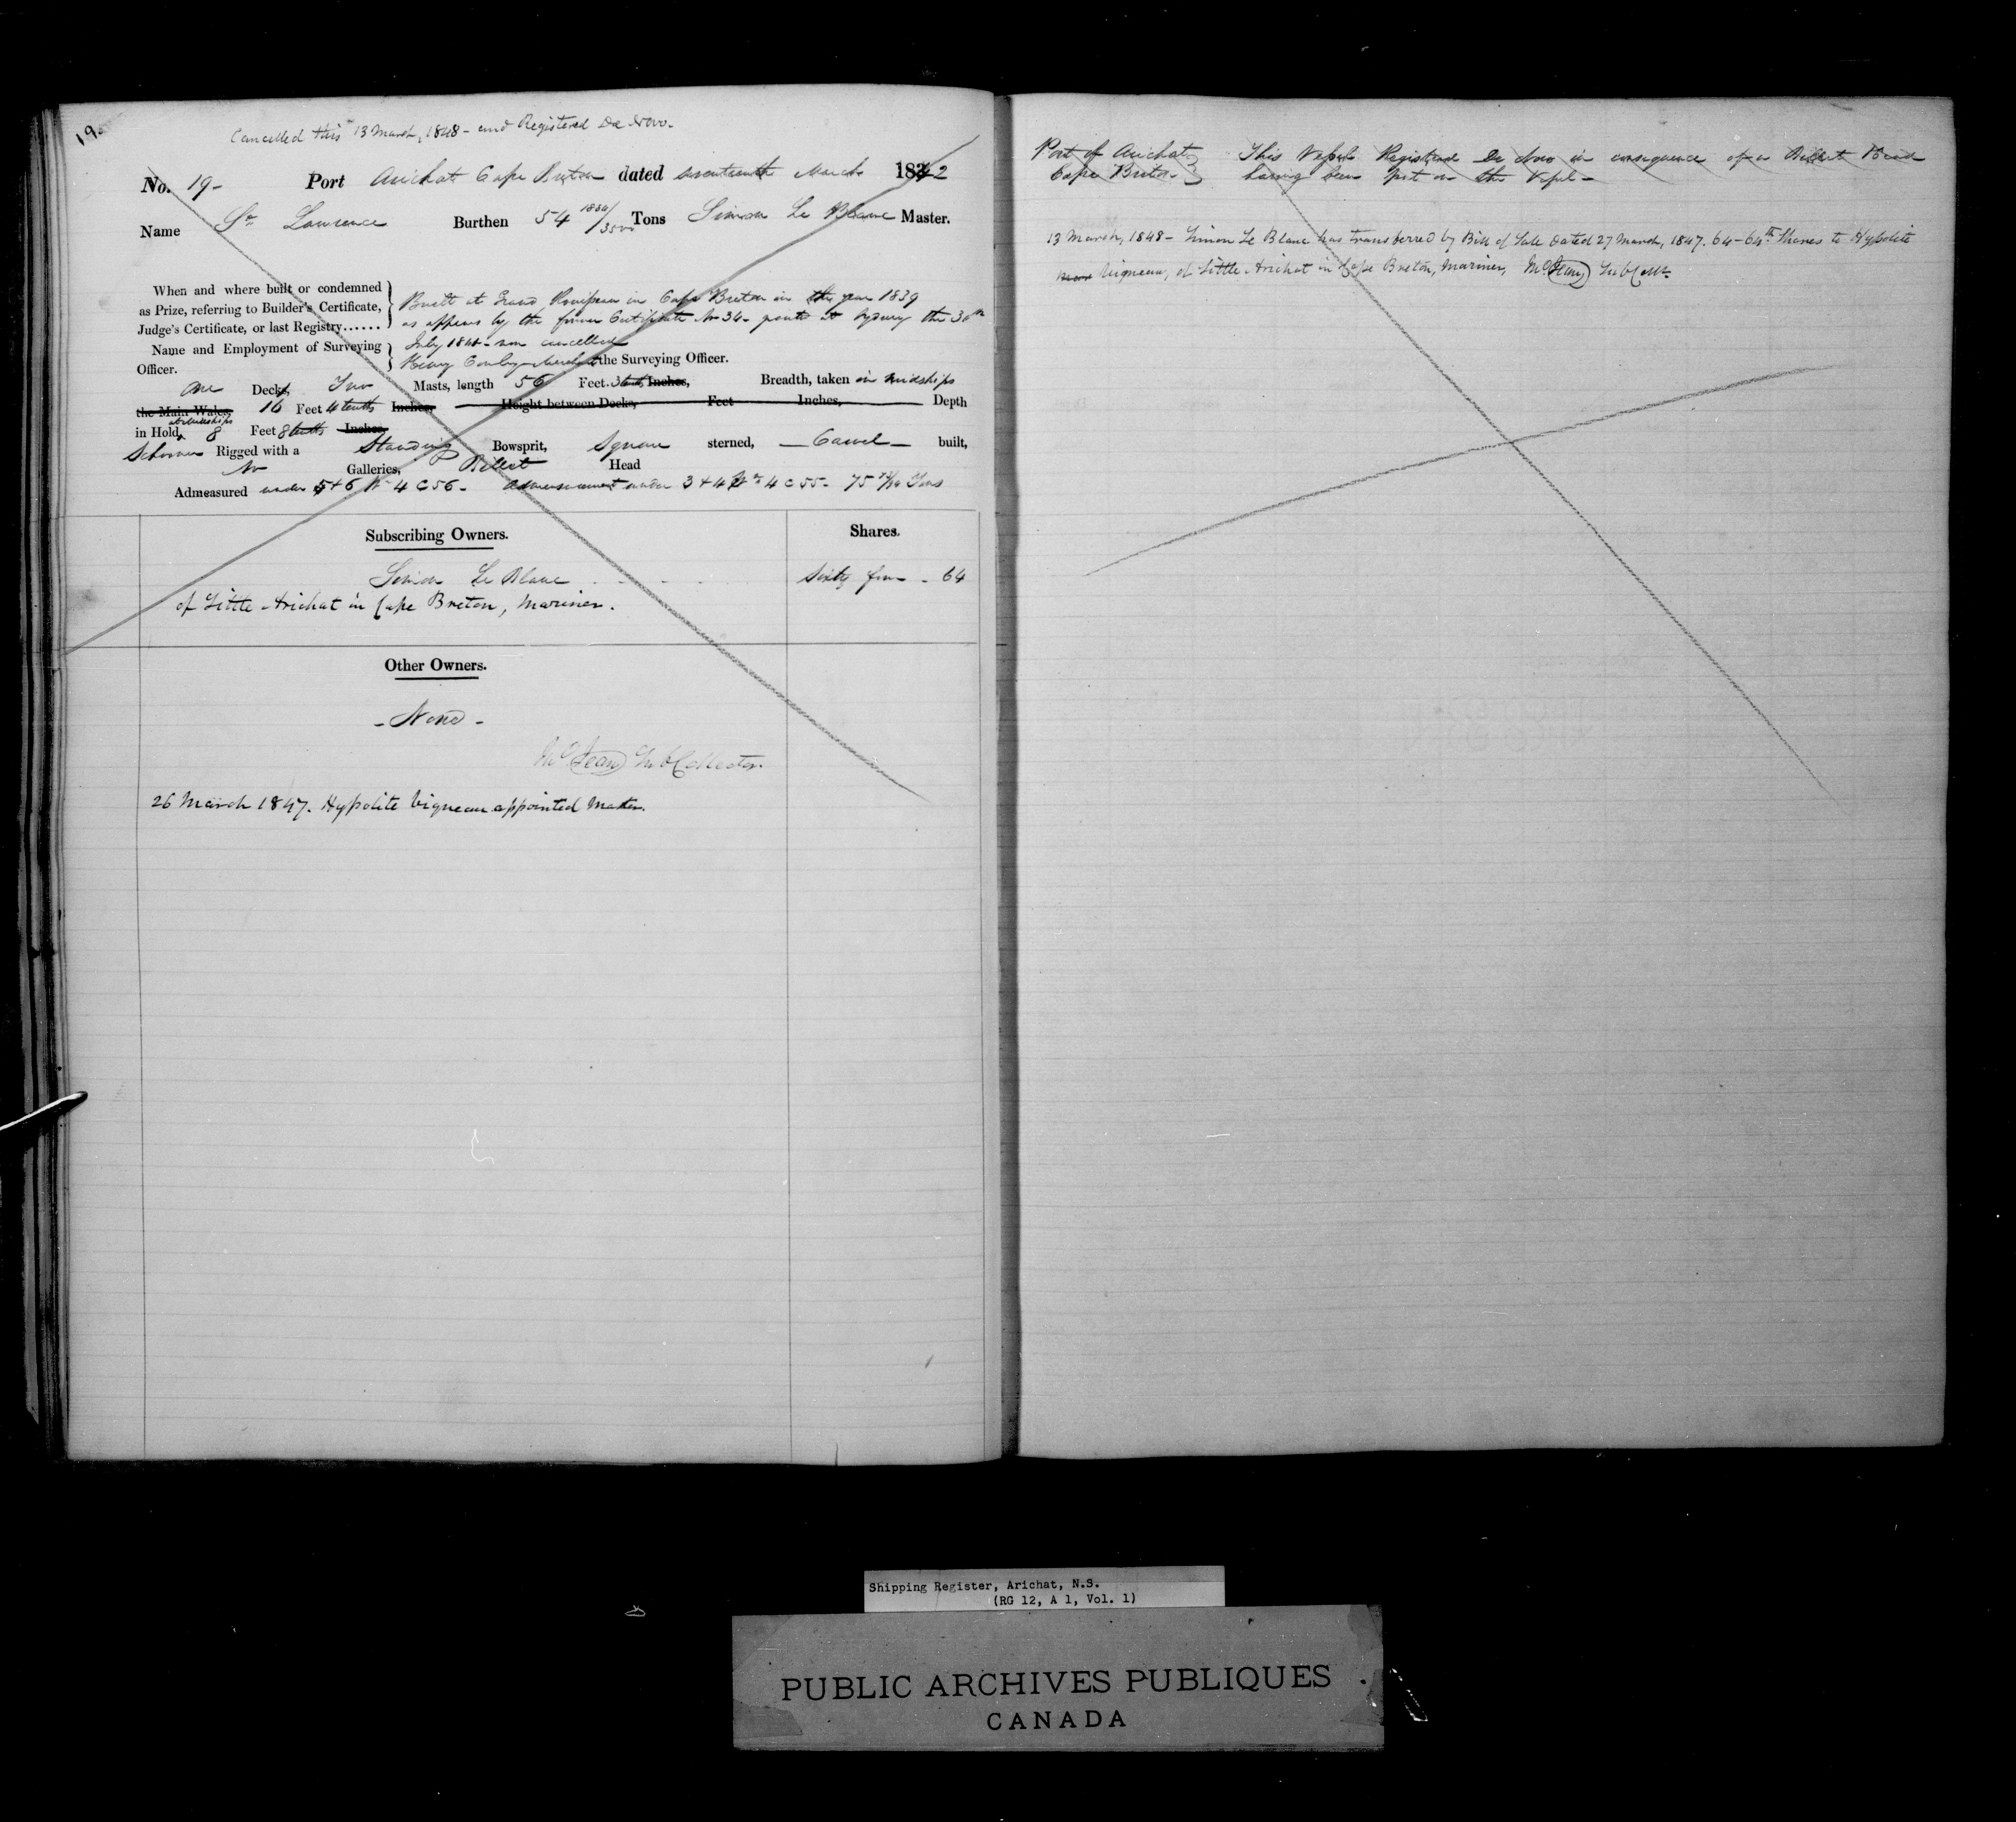 19.
Cancelled this 13 March, 1848 - and Registered De Novo.
No. 19- Port Arichat Cape Breton dated seventeenth March 1842
Name St Lawrence Burthen 54 1834/3500 Tons Simon Le Blanc Master.
When and where built or condemned
as Prize, referring to Builder's Certificate,
Judge's Certificate, or last Registry......
Built at Grand in Cape Breton in the year 1839
as appears by the former Certificate No 34- granted at Sydney the 30th
July 1841 - now cancelled
Name and Employment of Surveying
Officer.
Henry the Surveying Officer.
One Decks, Two Masts, length 56 Feet 3 tenths Inches, Breadth, taken in midships
the Main Wales, 16 Feet 4 tenths Inches, Height between Decks, Feet Inches, Depth
in Hold at midships 8 Feet 8 tenths Inches
Schooner Rigged with a Standing Bowsprit, Square sterned, - Carvel - built,
No Galleries, Billet Head
Admeasured under 5+6 Wm 4 C 56- Admeasurement under 3+4 Wm 4 C 55- 75 Tons
Subscribing Owners. Shares.
Simon Le Blanc Sixty four - 64
of Little Arichat in Cape Breton, Mariner.
Other Owners.
- None -
McJean Sub Collector.
26 March 1847. Hypolite Vigneau appointed Master.
Port of Arichat
Cape Breton
This Vessel Registered De Novo in consequence of a Billet Head
having been put on the Vessel -
13 March, 1848 - Simon Le Blanc has transferred by Bill of Sale dated 27 March, 1847. 64-64th Shares to Hypolite
Vigneau, of Little Arichat in Cape Breton, Mariner, McJean Sub Collr
Shipping Register, Arichat, N.S.
(RG 12, A 1, Vol. 1)
PUBLIC ARCHIVES PUBLIQUES
CANADA